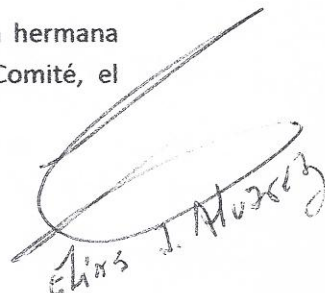 hermana
Comité, el
Elias J. Alvarez